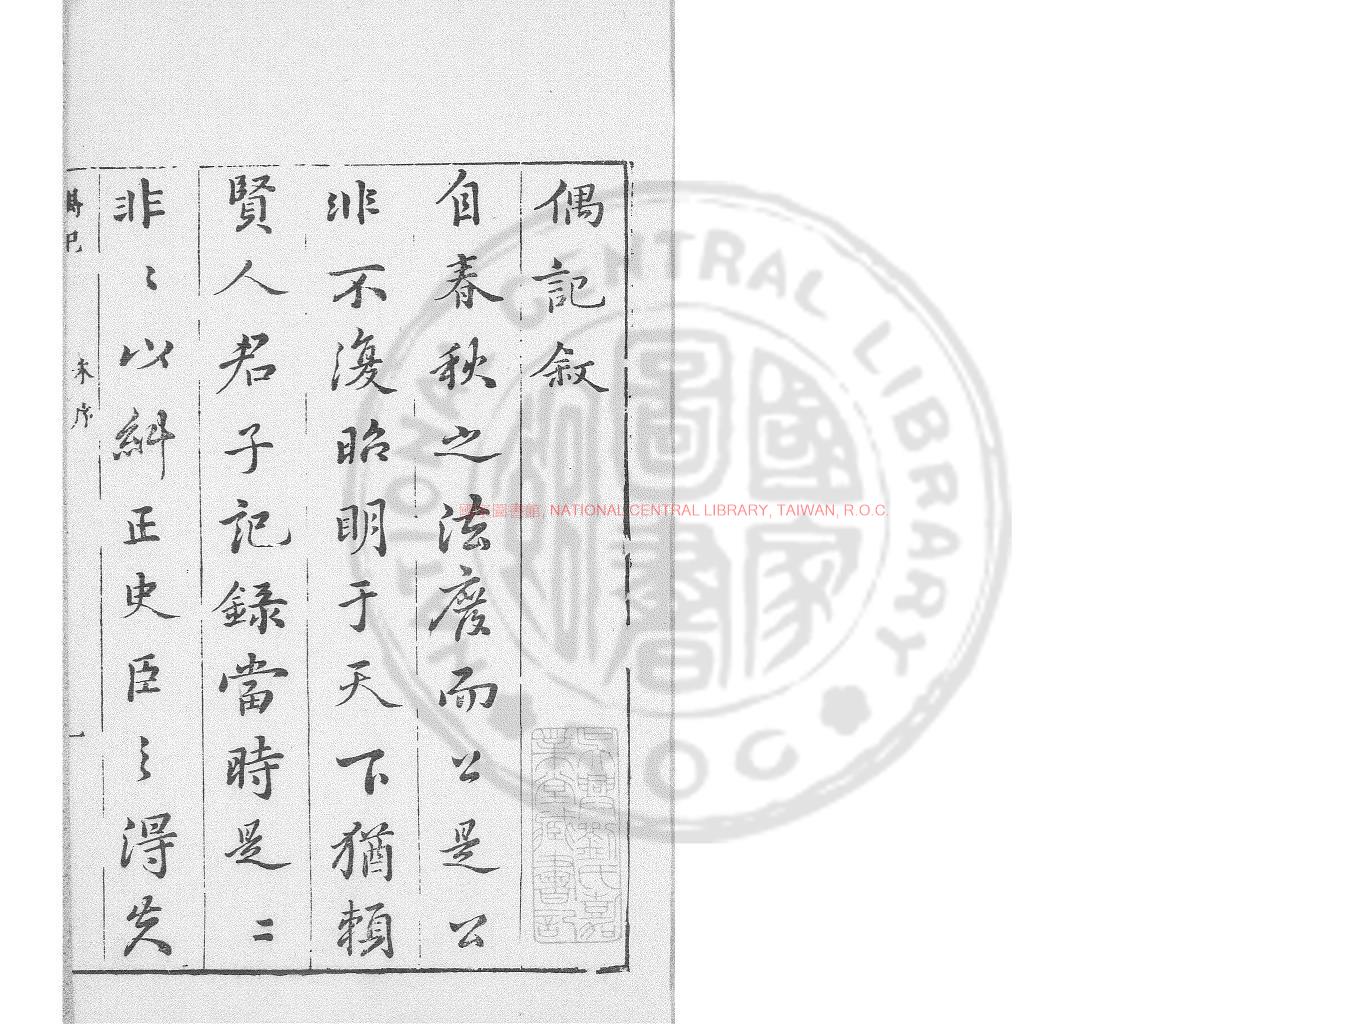 偶記敘
自春秋之法廢而公是公
非不復昭明于天下猶賴
賢人君子記錄當時是二
非〻以糾正史臣之得失
偶記 朱序 一
吳興劉氏嘉業堂藏書記
國家圖書館, NATIONAL CENTRAL LIBRARY, TAIWAN, R.O.C.
NATIONAL CENTRAL LIBRARY R.O.C.
國家圖書